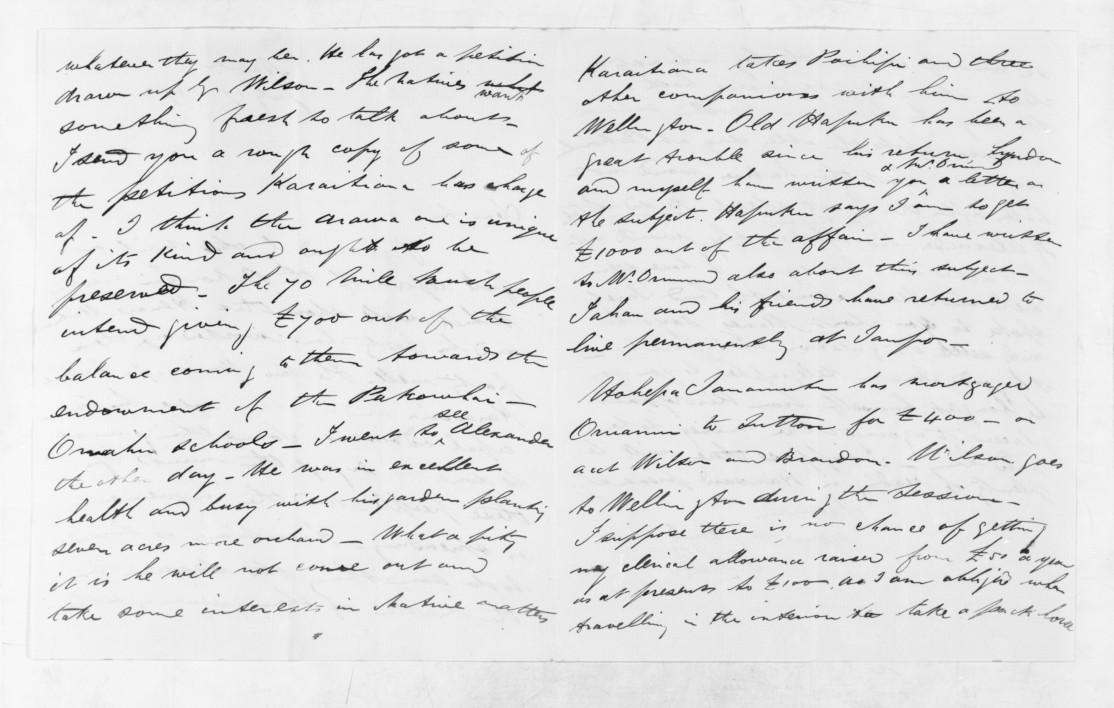 whatever they may be. He has got a petition
drawn up by Wilson - The Natives want
something fresh to talk about -
I send you a rough copy of some of
the petitions Karaitiana has charge
of - I think the Arawa one is unique
of its kind and ought to be
preserved - The 70 Mile Bush people
intend giving £700 out of the
balance coming to them towards the
endowment of the Pakowhai -
Omahu schools - I went to see Alexander
the other day - He was in excellent
health and busy with his garden planting
seven acres more orchard - What a pity
it is he will not come out and
take some interest in Native matters
Karaitiana takes Paihipi and three
other companions with him to
Wellington - Old Hapuku has been a
great trouble since his return Lyndon
and myself have written you & Mr Ormond a letter on
the subject. Hapuku says I am to get
£1000 out of the affair - I have written
to Mr Ormond also about this subject -
Tahau and his friends have returned to
live permanently at Taupo -
Hohepa has mortgaged
to Sutton for £400 - on
acct Wilson and Brandon. Wilson goes
to Wellington during the Session -
I suppose there is no chance of getting
my clerical allowance raised from £50 a year
as at presents to £100 as I am obliged when
travelling in the interior to take a pack horse